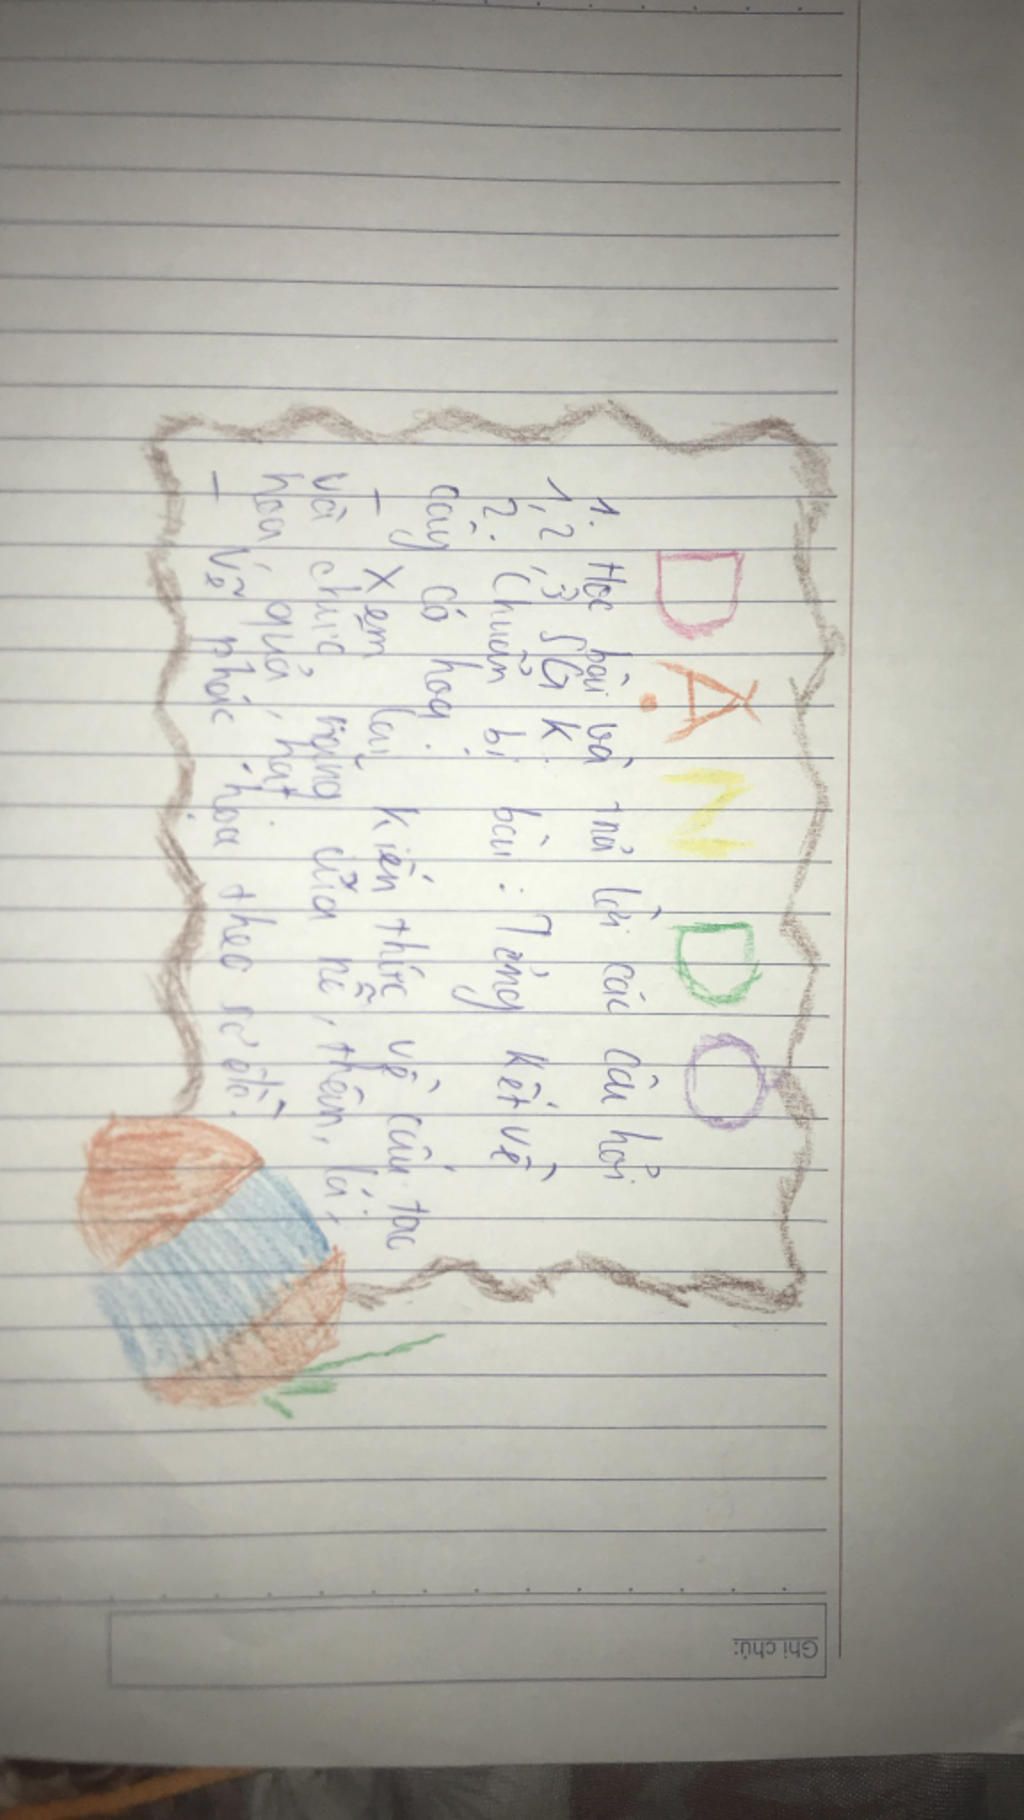 DẠN DO
1. Học bài và trả lời các câu hỏi
1, 2, 3 SGK
2. Chuẩn bị bài: Tổng kết về
cây có hoa.
- Xem lại kiến thức về cấu tạo
và chức năng của rễ, thân, lá,
hoa, quả, hạt
- Vẽ phác họa theo sơ đồ.
Ghi chú: